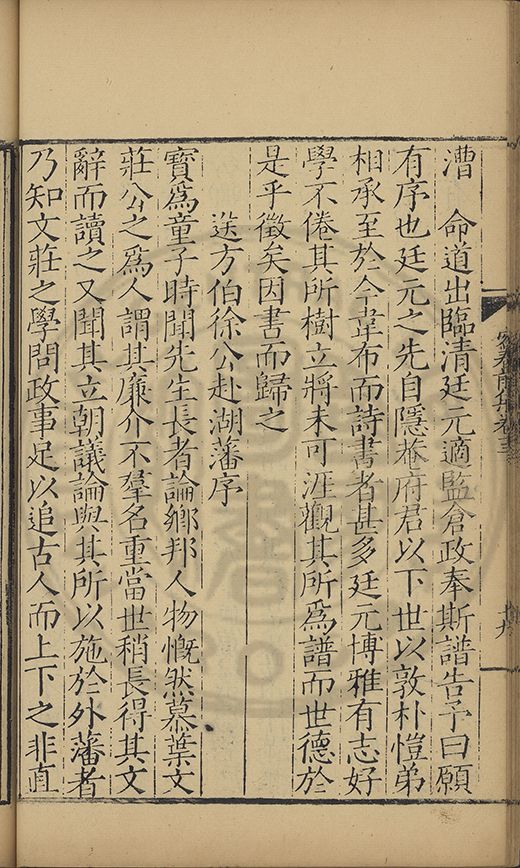 漕　命道出臨清廷元適監倉政奉斯譜告予曰願
有序也廷元之先自隱菴府君以下世以敦朴愷弟
相承至於今韋布而詩書者甚多廷元博雅有志好
學不倦其所樹立將未可涯觀其所為譜而世德於
是乎徵矣因書而歸之
送方伯徐公赴湖藩序
寶為童子時聞先生長者論鄉邦人物慨然慕葉文
莊公之為人謂其廉介不羣名重當世稍長得其文
辭而讀之又聞其立朝議論與其所以施於外藩者
乃知文莊之學問政事足以追古人而上下之非直